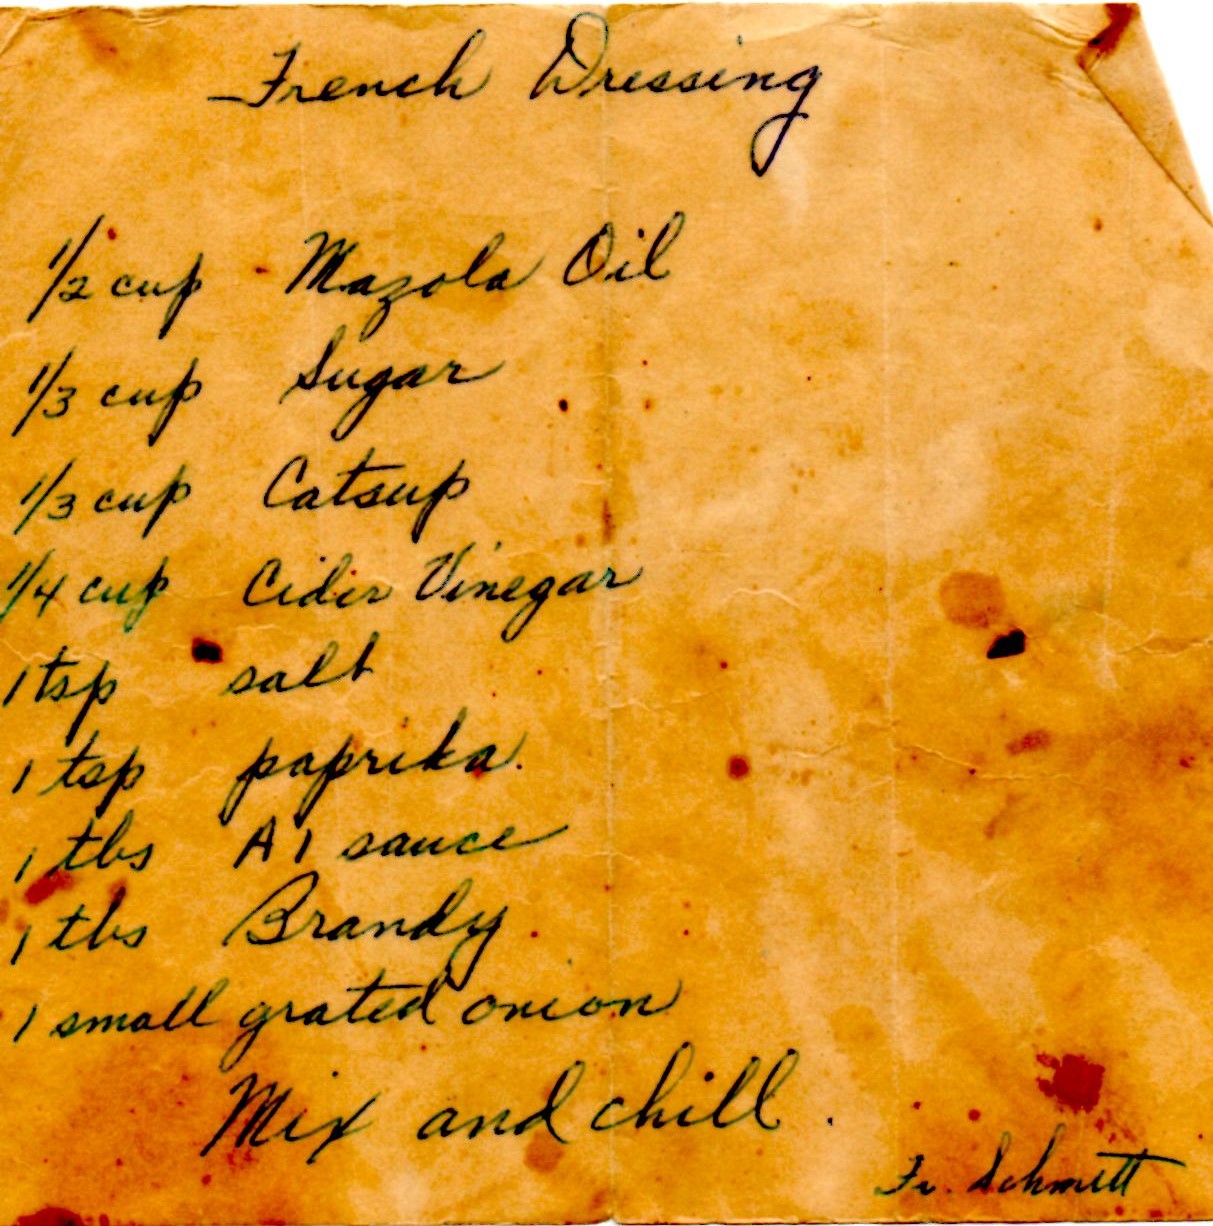 French Dressing
1/2 cup Mazola Oil
1/3 cup Sugar
1/3 cup Catsup
1/4 cup Cider Vinegar
1 tsp salt
1 tsp paprika.
1 tbs A1 sauce
1 tbs Brandy
1 small grated onion
Mix and chill.
Fr. Schmitt